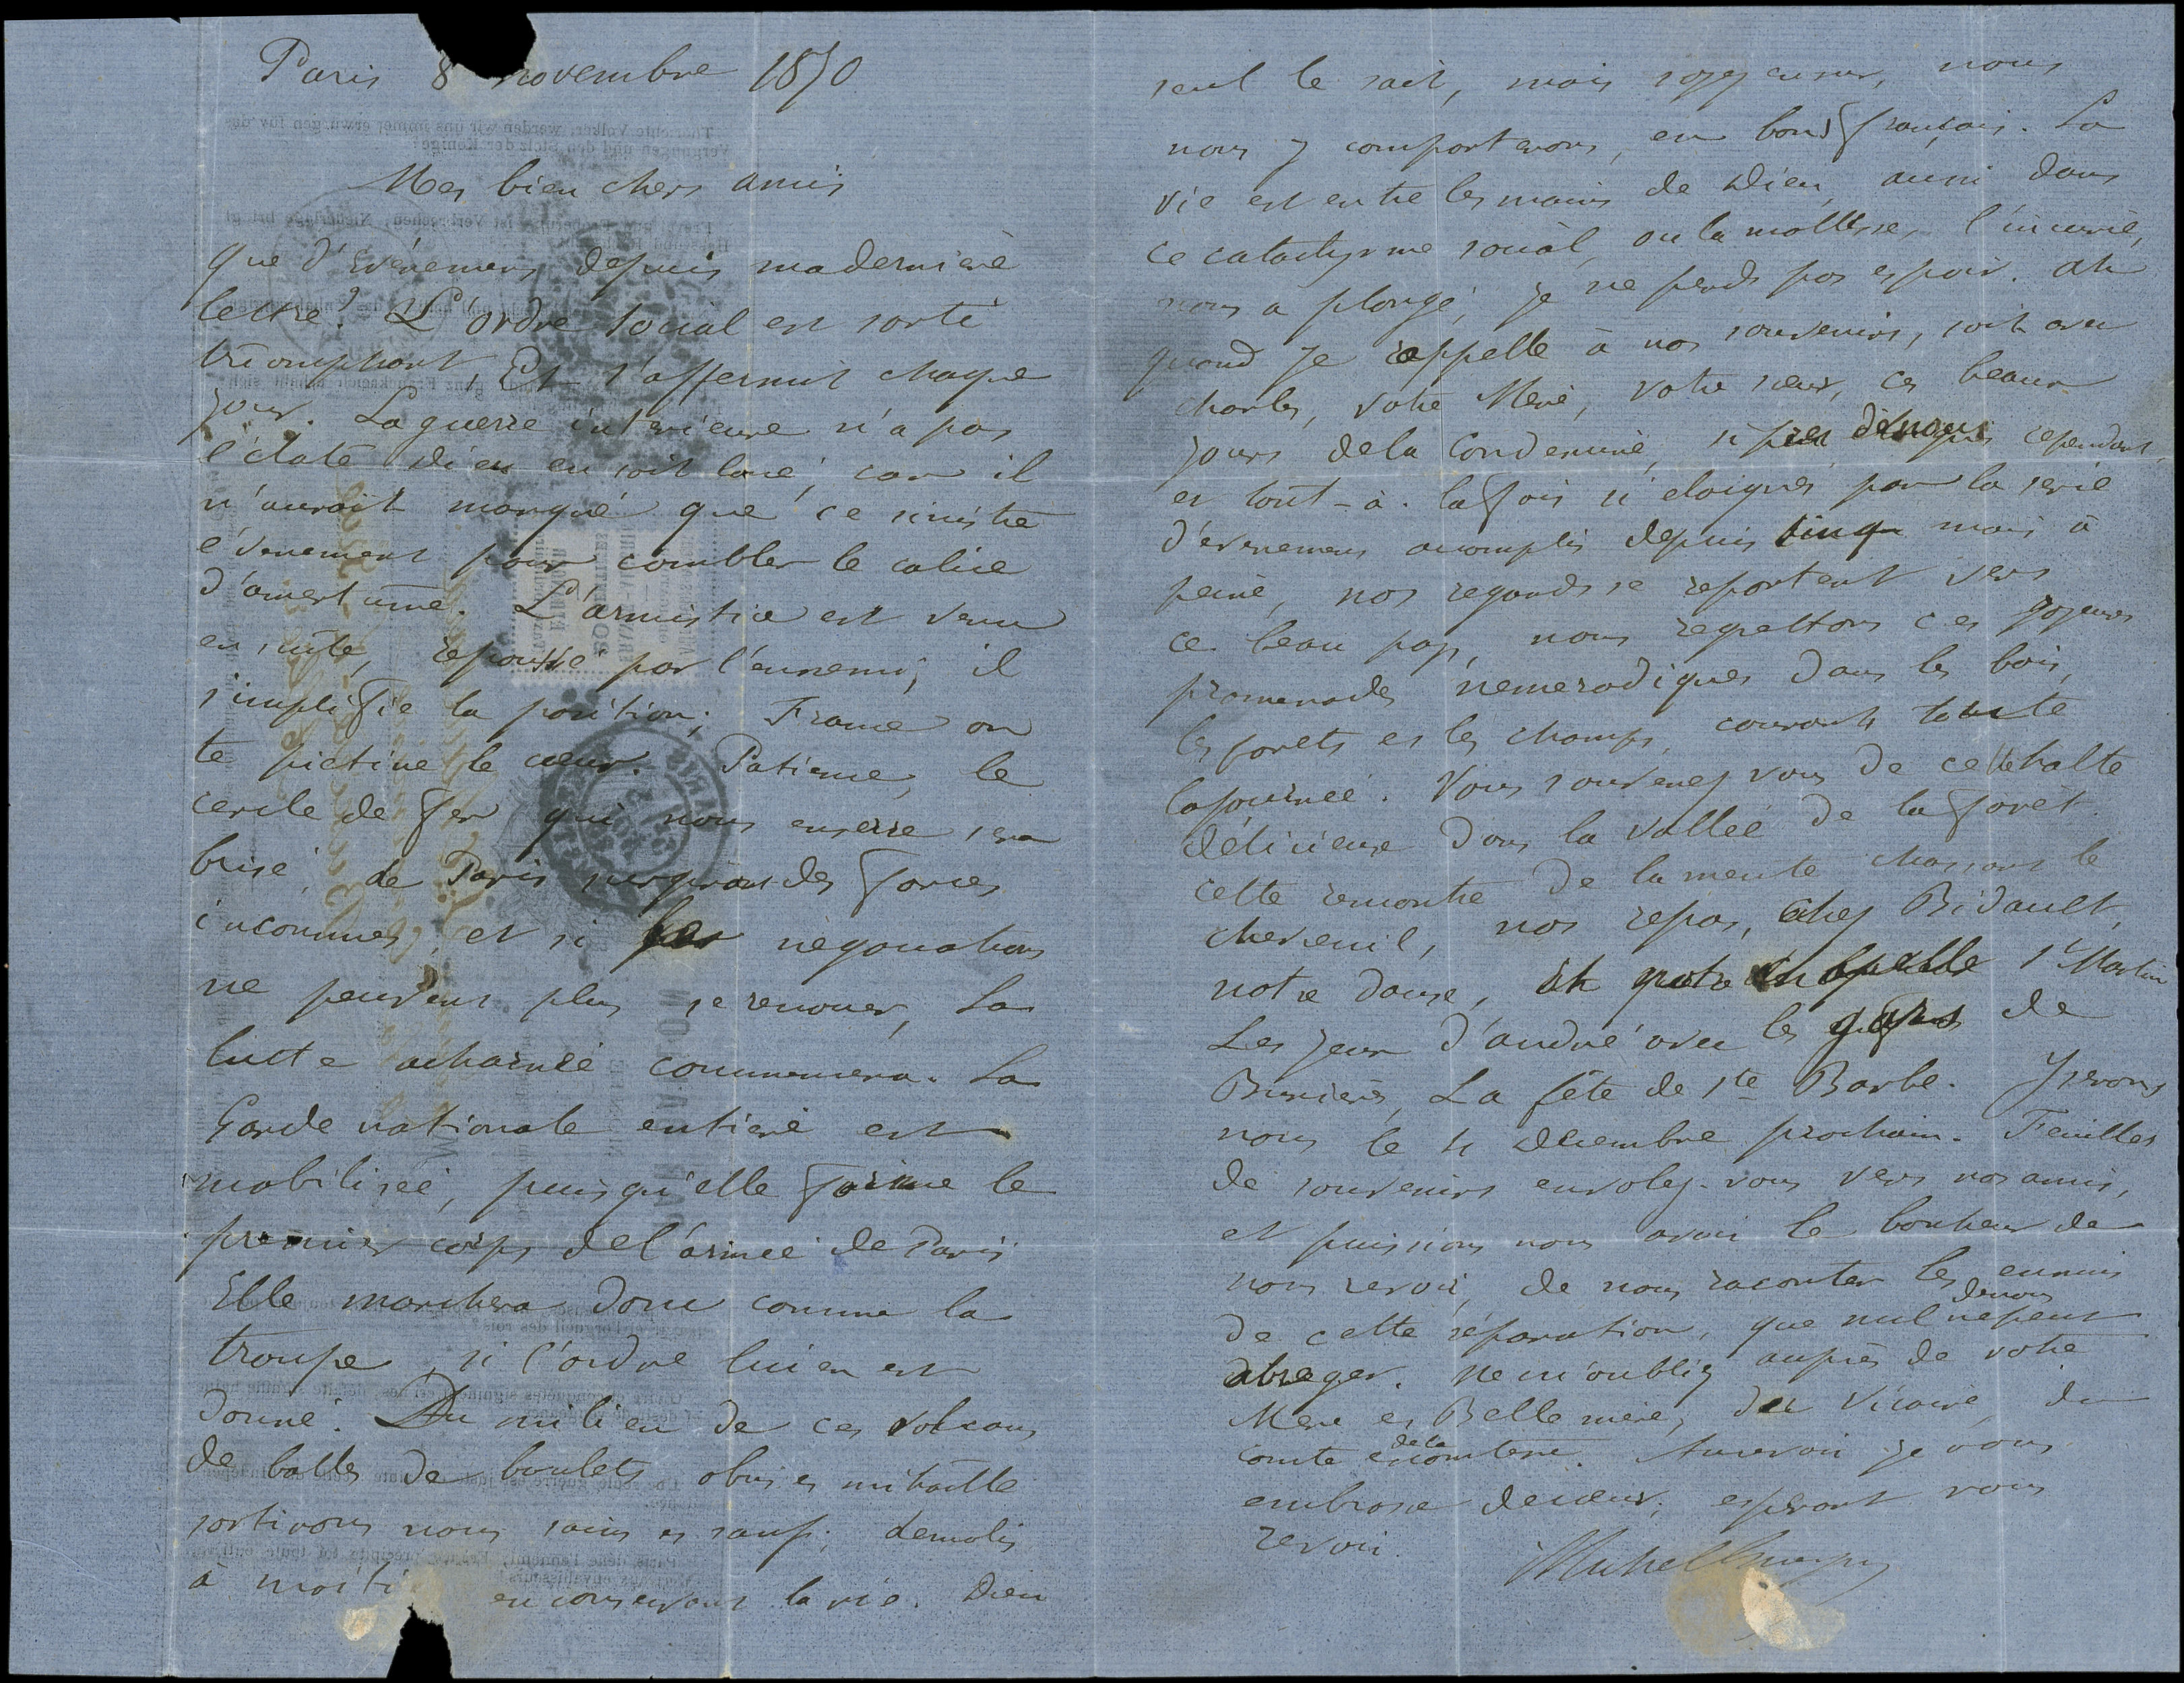 Paris 8 novembre 1870
Mes bien chers amis
que d'évènemens depuis ma dernière
lettre? L'ordre social est sorti
triomphant, Et s'affermit chaque
jour. La guerre intérieure n'a pas
éclaté Dieu en soit loué, car il
n'aurait manqué que ce sinistre
évènement pour combler le calice
d'amertume. L'armistice est venu
ensuite, repoussé par l'ennemi; il
simplifie la position; France on
te piétine le cœur. Patience, le
cercle de fer qui nous enserre sera
brisé, de Paris surgiront des forces
inconnues, et si les négociations
ne peuvent plus se renouer, la
lutte acharnée commencera. La
Garde nationale entière est
mobilisée, puisqu'elle forme le
premier corps de l'armée de Paris
Elle marchera donc comme la
troupe, si l'ordre lui en est
donné. Du milieu de ces volcans
de balles de boulets obus et mitraille
sortirons nous sains et saufs; demolis
à moitié en conservant la vie. Dieu
seul le sait, mais soyez en sur, nous
nous y comporterons, en bons français. La
vie est entre les mains de Dieu, aussi dans
ce cataclysme social, ou la mollesse, l'incurie,
nous a plongé, je ne perds pas espoir. Ah
quand je rappelle à nos souvenirs, soit avec
Charles, votre Mère, votre sœur, ces beaux
jours de la Condemine, si près de nous cependant,
et tout-à-la fois si eloignés par la serie
d'évenemens accomplis depuis cinq mois à
peine, nos regards se reportent vers
ce beau pays, nous regrettons ces joyeuses
promenades nemerodiques dans les bois,
les forets et les champs, courant toute
la journée. Vous souvenez vous de cette halte
délicieuse dans la vallée de la forêt
cette rencontre de la meute chassant le
chevreuil, nos repas, chez Bidault,
notre danse, St Martin
Les jeux d'andré avec les gars de
La fête de Ste Barbe. Y serons
nous le 4 décembre prochain. Feuilles
de souvenirs envolez-vous vers nos amis,
et puissions nous avoir le bonheur de
nous revoir, de nous raconter les ennuis
de cette séparation, que nul de nous ne peut
abréger. Ne m'oubliez auprès de votre
Mère et Belle mère, du Vicaire, du
comte et de la comtesse. Au revoir je vous
embrasse de cœur, espérant vous
revoir.
Michel